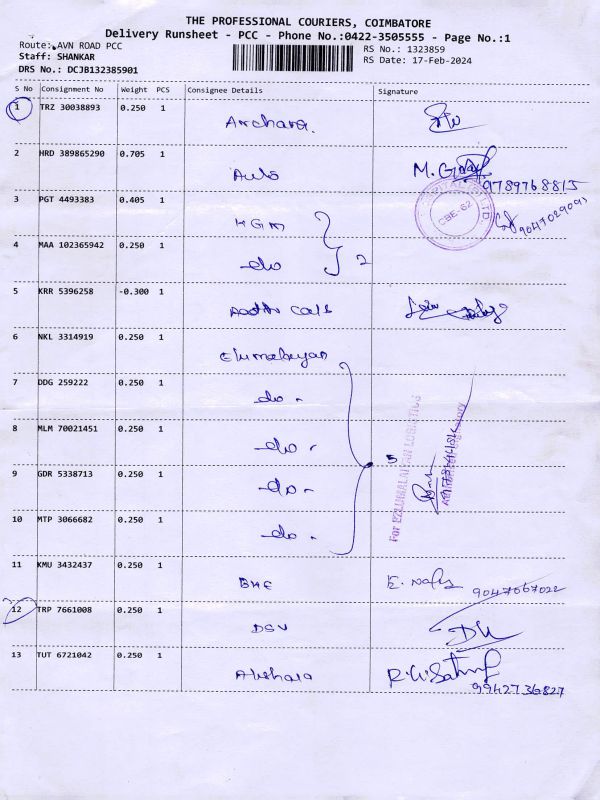 THE PROFESSIONAL COURIERS, COIMBATORE
Delivery Runsheet - PCC - Phone No.:0422-3505555 - Page No.:1
Route: AVN ROAD PCC
RS No.: 1323859
Staff: SHANKAR
RS Date: 17-Feb-2024
DRS No.: DCJB132385901
S No Consignment No Weight PCS Consignee Details Signature
1 TRZ 30038893 0.250 1
Archana.
2 HRD 389865290 0.705 1
Auto M. G
9789768815
3 PGT 4493383 0.405 1
KGM CBE-62
4 MAA 102365942 0.250 1
do 2
5 KRR 5396258 -0.300 1
6 NKL 3314919 0.250 1
Elumalayan
7 DDG 259222 0.250 1
do -
8 MLM 70021451 0.250 1
do -
5
9 GDR 5338713 0.250 1
do -
10 MTP 3066682 0.250 1
do -
11 KMU 3432437 0.250 1
BHE 9047667022
12 TRP 7661008 0.250 1
DSV
13 TUT 6721042 0.250 1
Akshara
9942736827